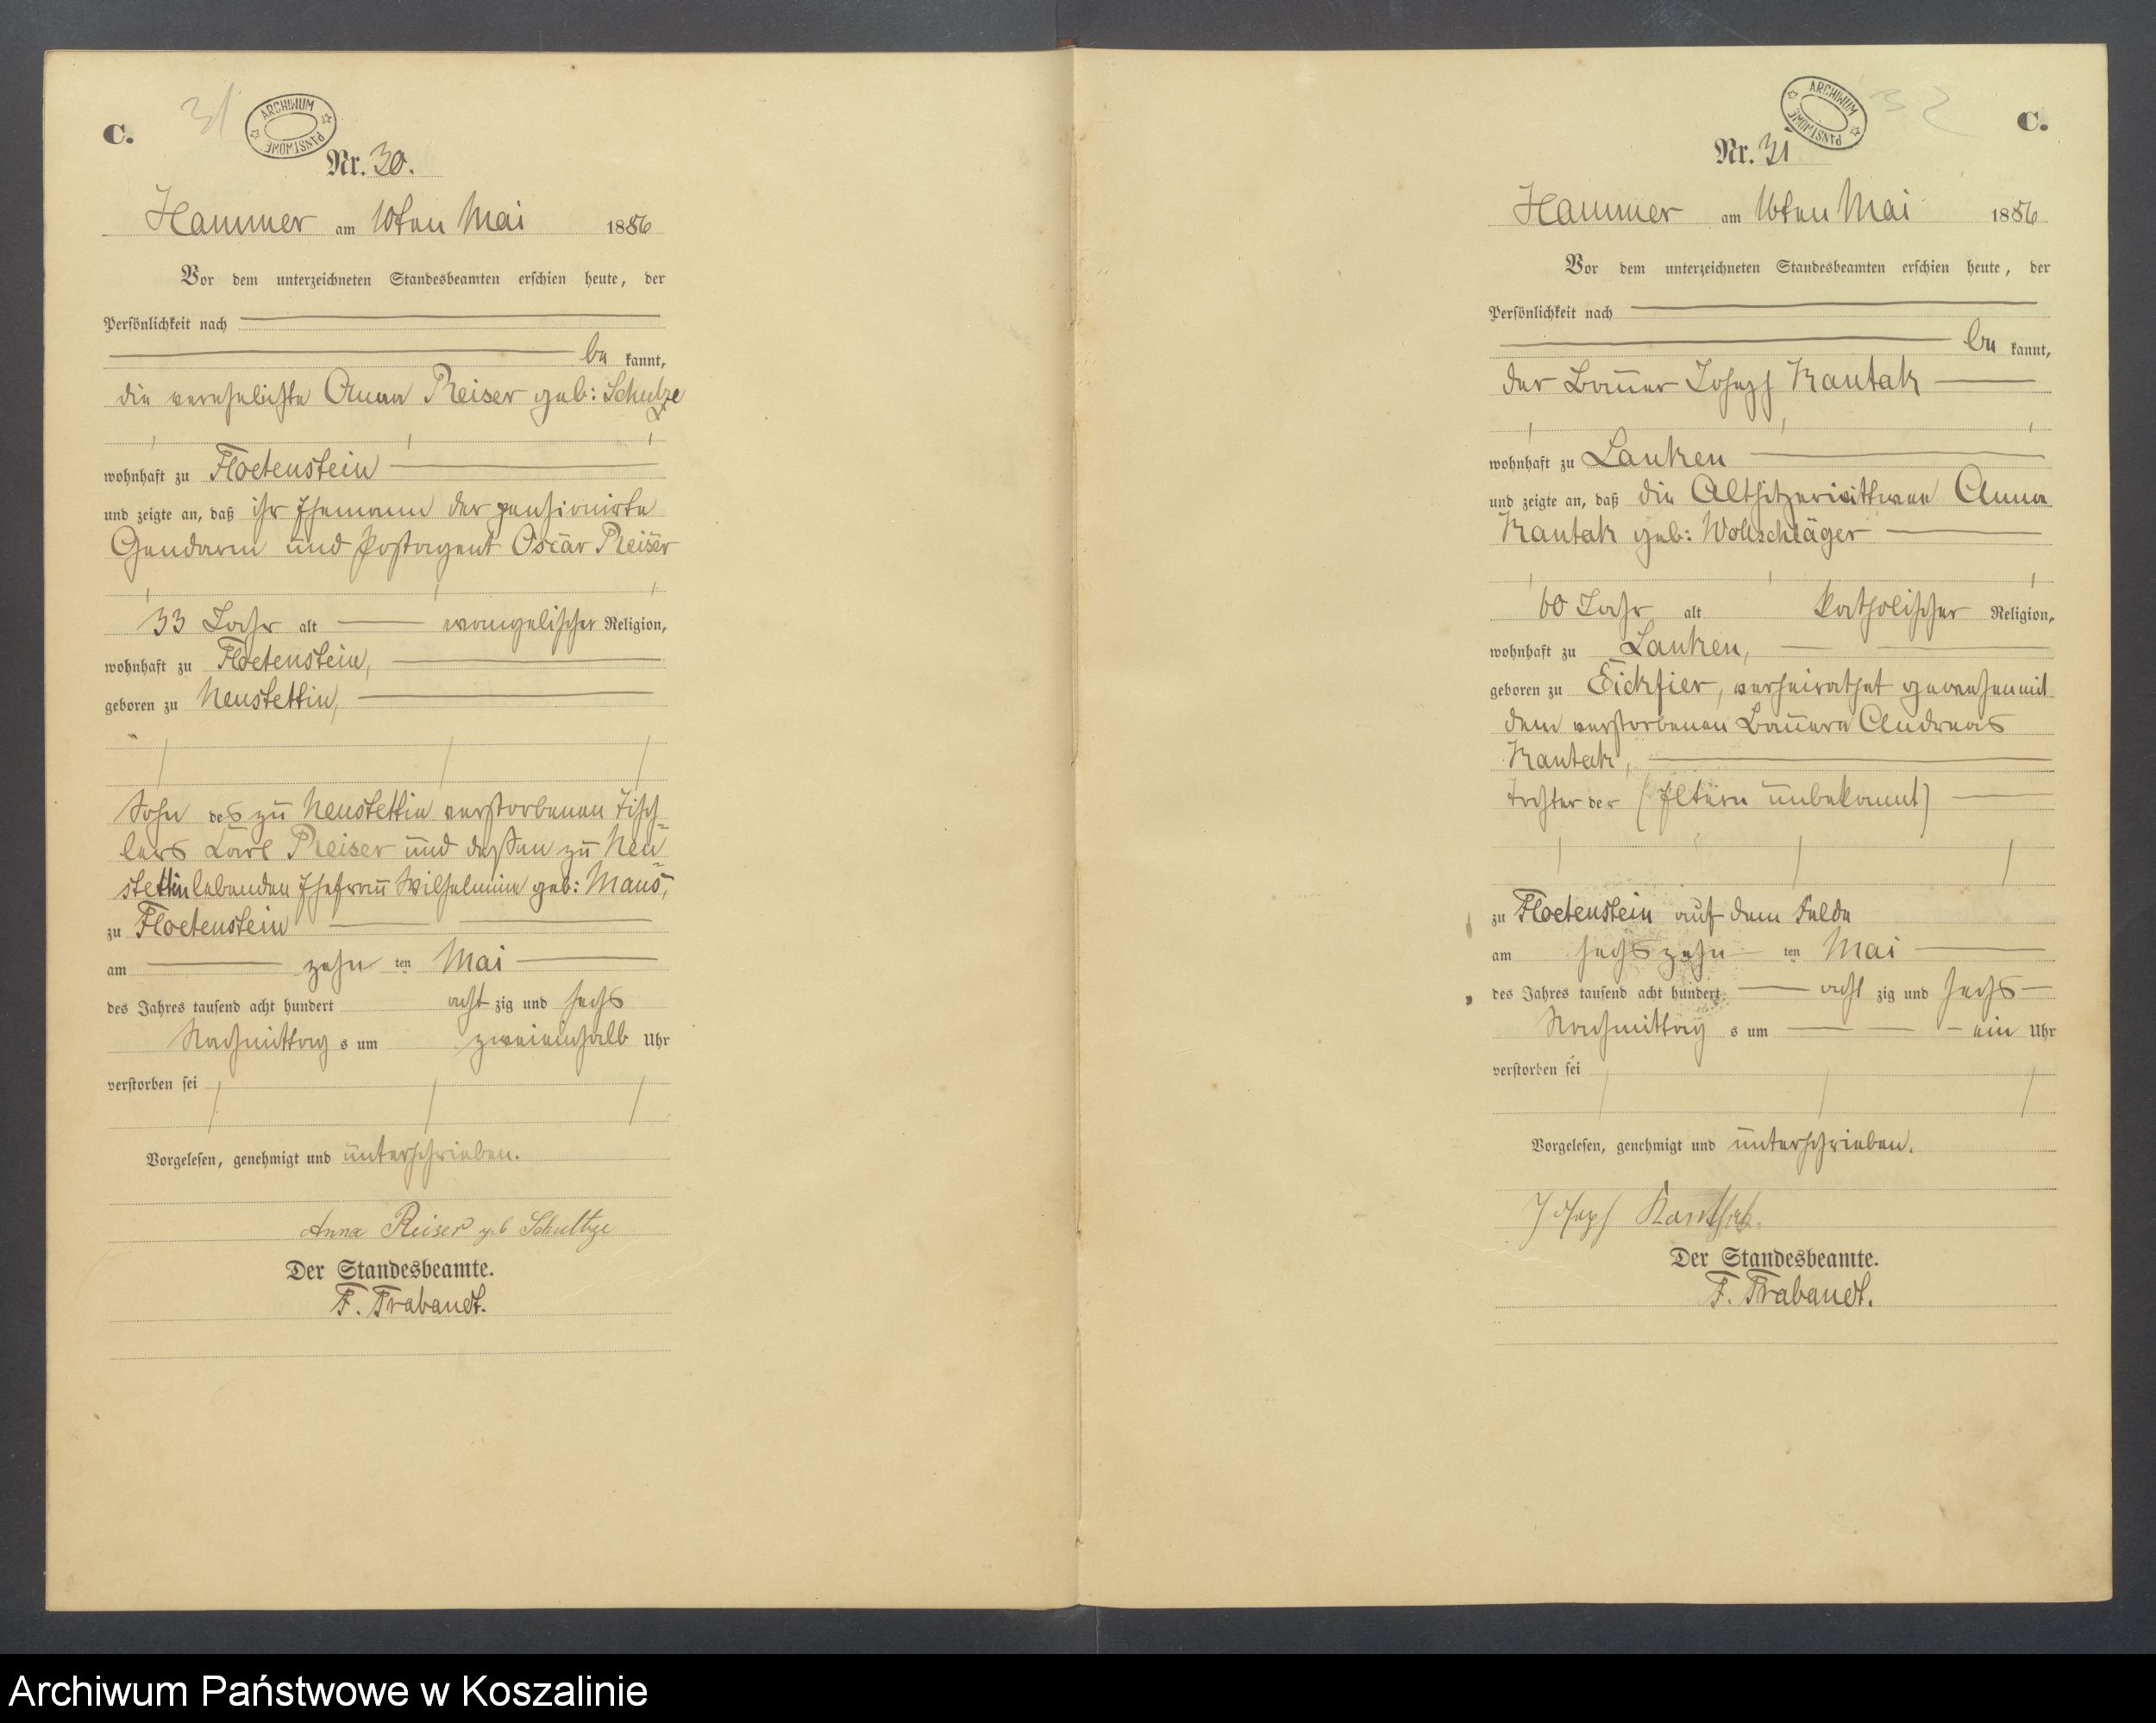 C.
31
ARCHIWUM PAŃSTWOWE
Nr. 30.
Hammer am 10ten Mai 1886
Vor dem unterzeichneten Standesbeamten erschien heute, der
Persönlichkeit nach
be kannt,
die verehelichte Anna Reiser geb: Schulze
wohnhaft zu Floetenstein
und zeigte an, daß ihr Ehemann der pensionirte
Gendarm und Postagent Oscar Reiser
33 Jahr alt evangelischer Religion,
wohnhaft zu Floetenstein,
geboren zu Neustettin,
Sohn des zu Neustettin verstorbenen Tisch=
lers Carl Reiser und dessen zu Neu=
stettin lebenden Ehefrau Wilhelmine geb: Maus,
zu Floetenstein
am zehn ten Mai
des Jahres tausend acht hundert acht zig und sechs
Nachmittag s um zweieinhalb Uhr
verstorben sei
Vorgelesen, genehmigt und unterschrieben.
Anna Reiser geb Schultze
Der Standesbeamte.
F. Trabandt.
C.
32
ARCHIWUM PAŃSTWOWE
Nr. 31
Hammer am 16ten Mai 1886
Vor dem unterzeichneten Standesbeamten erschien heute, der
Persönlichkeit nach
be kannt,
der Bauer Joseph Kantak
wohnhaft zu Lanken
und zeigte an, daß die Altsitzerwittwe Anna
Kantak geb: Wollschläger
60 Jahr alt katholischer Religion,
wohnhaft zu Lanken,
geboren zu Eickfier, verheirathet gewesen mit
dem verstorbenen Bauern Andreas
Kantak,
Tochter der (Eltern unbekannt)
zu Floetenstein auf dem Felde
am sechszehn ten Mai
des Jahres tausend acht hundert acht zig und sechs
Nachmittag s um ein Uhr
verstorben sei
Vorgelesen, genehmigt und unterschrieben.
Joseph
Der Standesbeamte.
F. Trabandt.
Archiwum Państwowe w Koszalinie